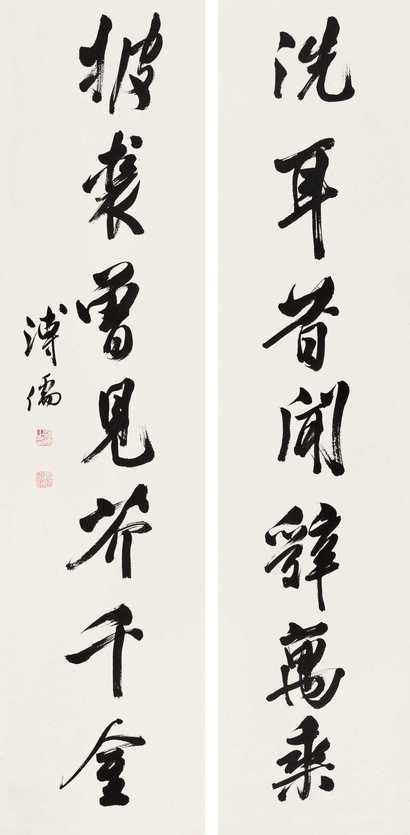 洗耳昔聞辭萬乘
披裘曾見芥千金
溥儒